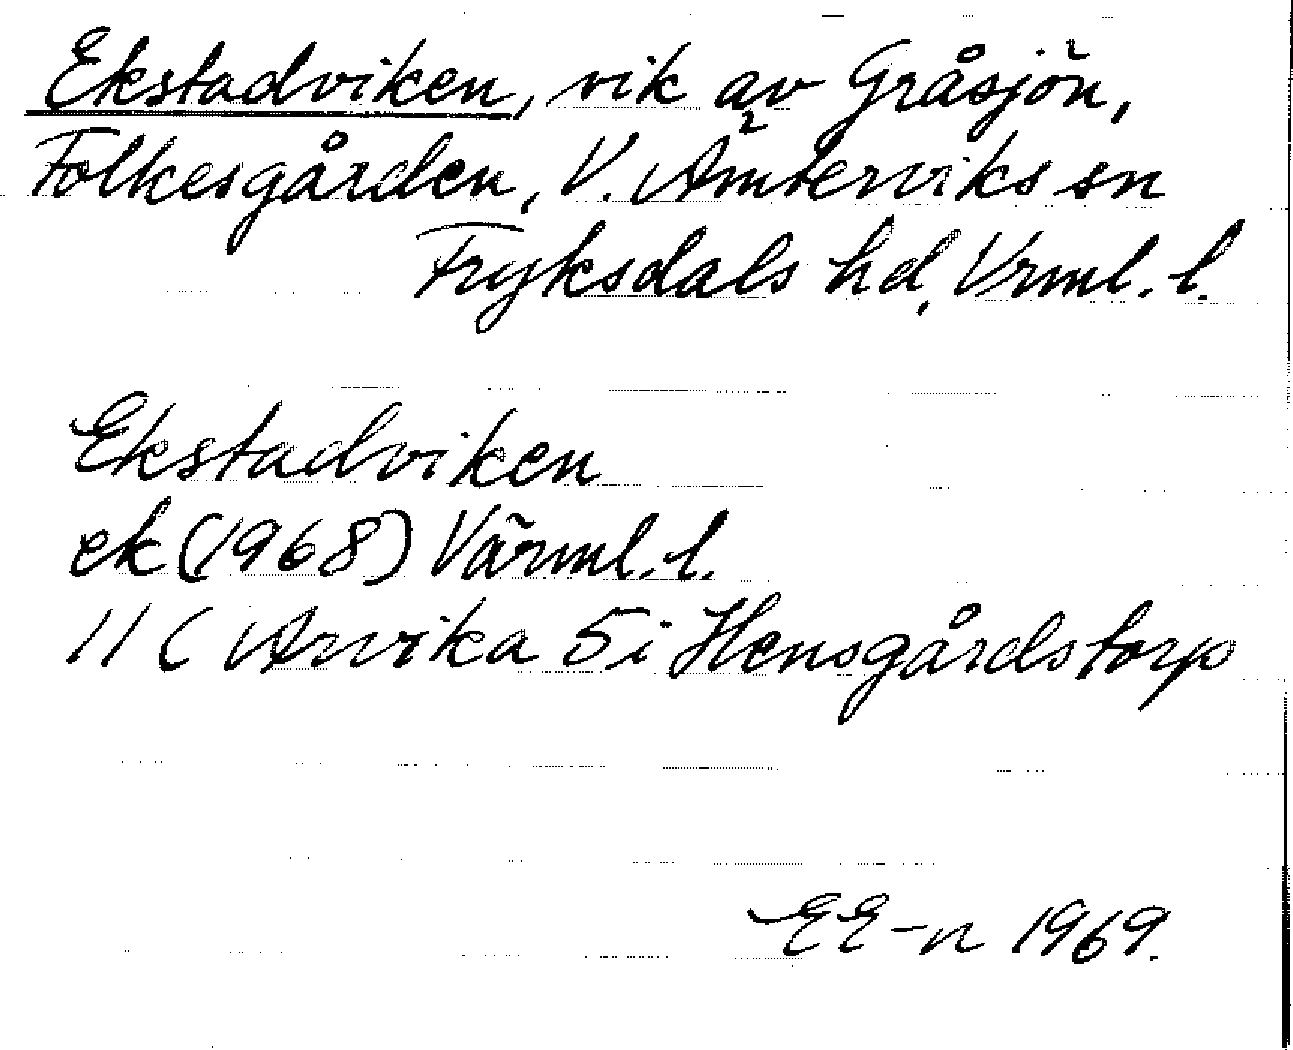 Ekstadviken, vik av Gråsjön,
Folkesgården, V. Ämterviks sn
Fryksdals hd, Vrml. l.
Ekstadviken
ek (1968) Värml. l.
11 C Arvika 5 i Hensgårdstorp
EE-n 1969.